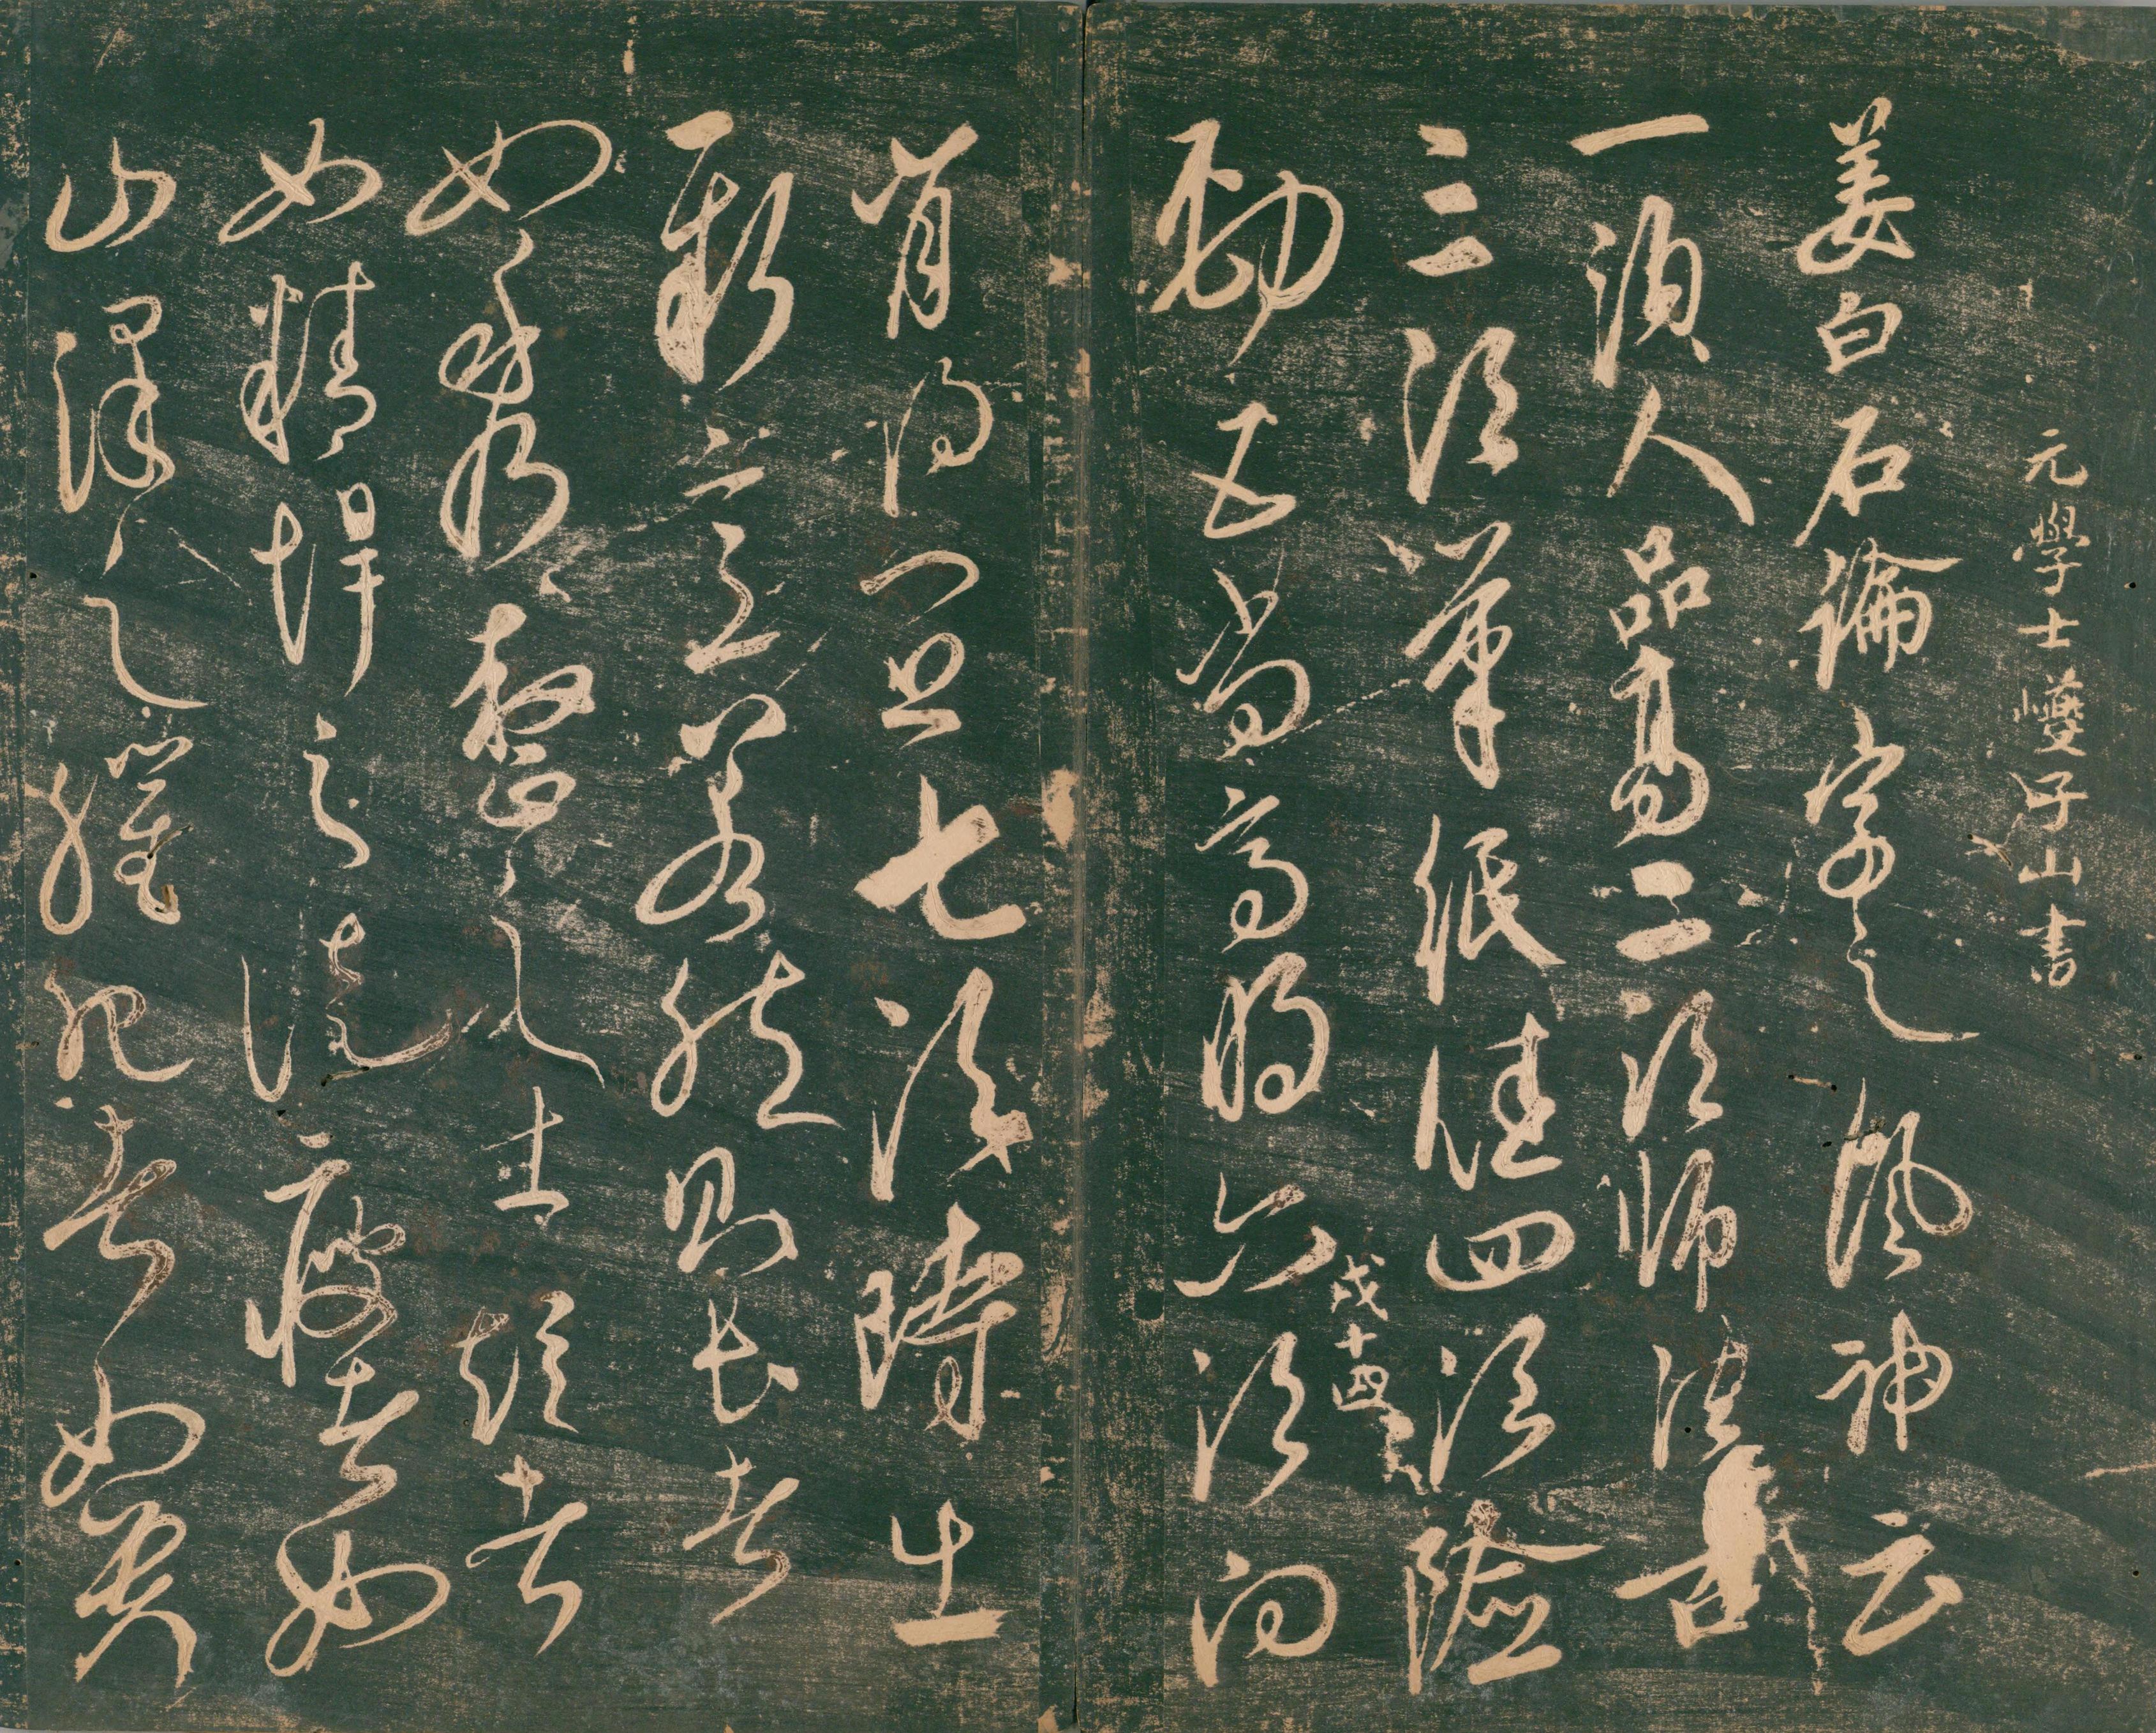 元學士巙子山書
姜白石論字之風神云
一須人品高二須師法古
三須筆紙佳四須險
戊十四
勁五尚高明六須向
背得宜七須時出
新意若然則長者
如秀整之士短者
如精悍之徒瘦者如
山澤之癯肥者如貴